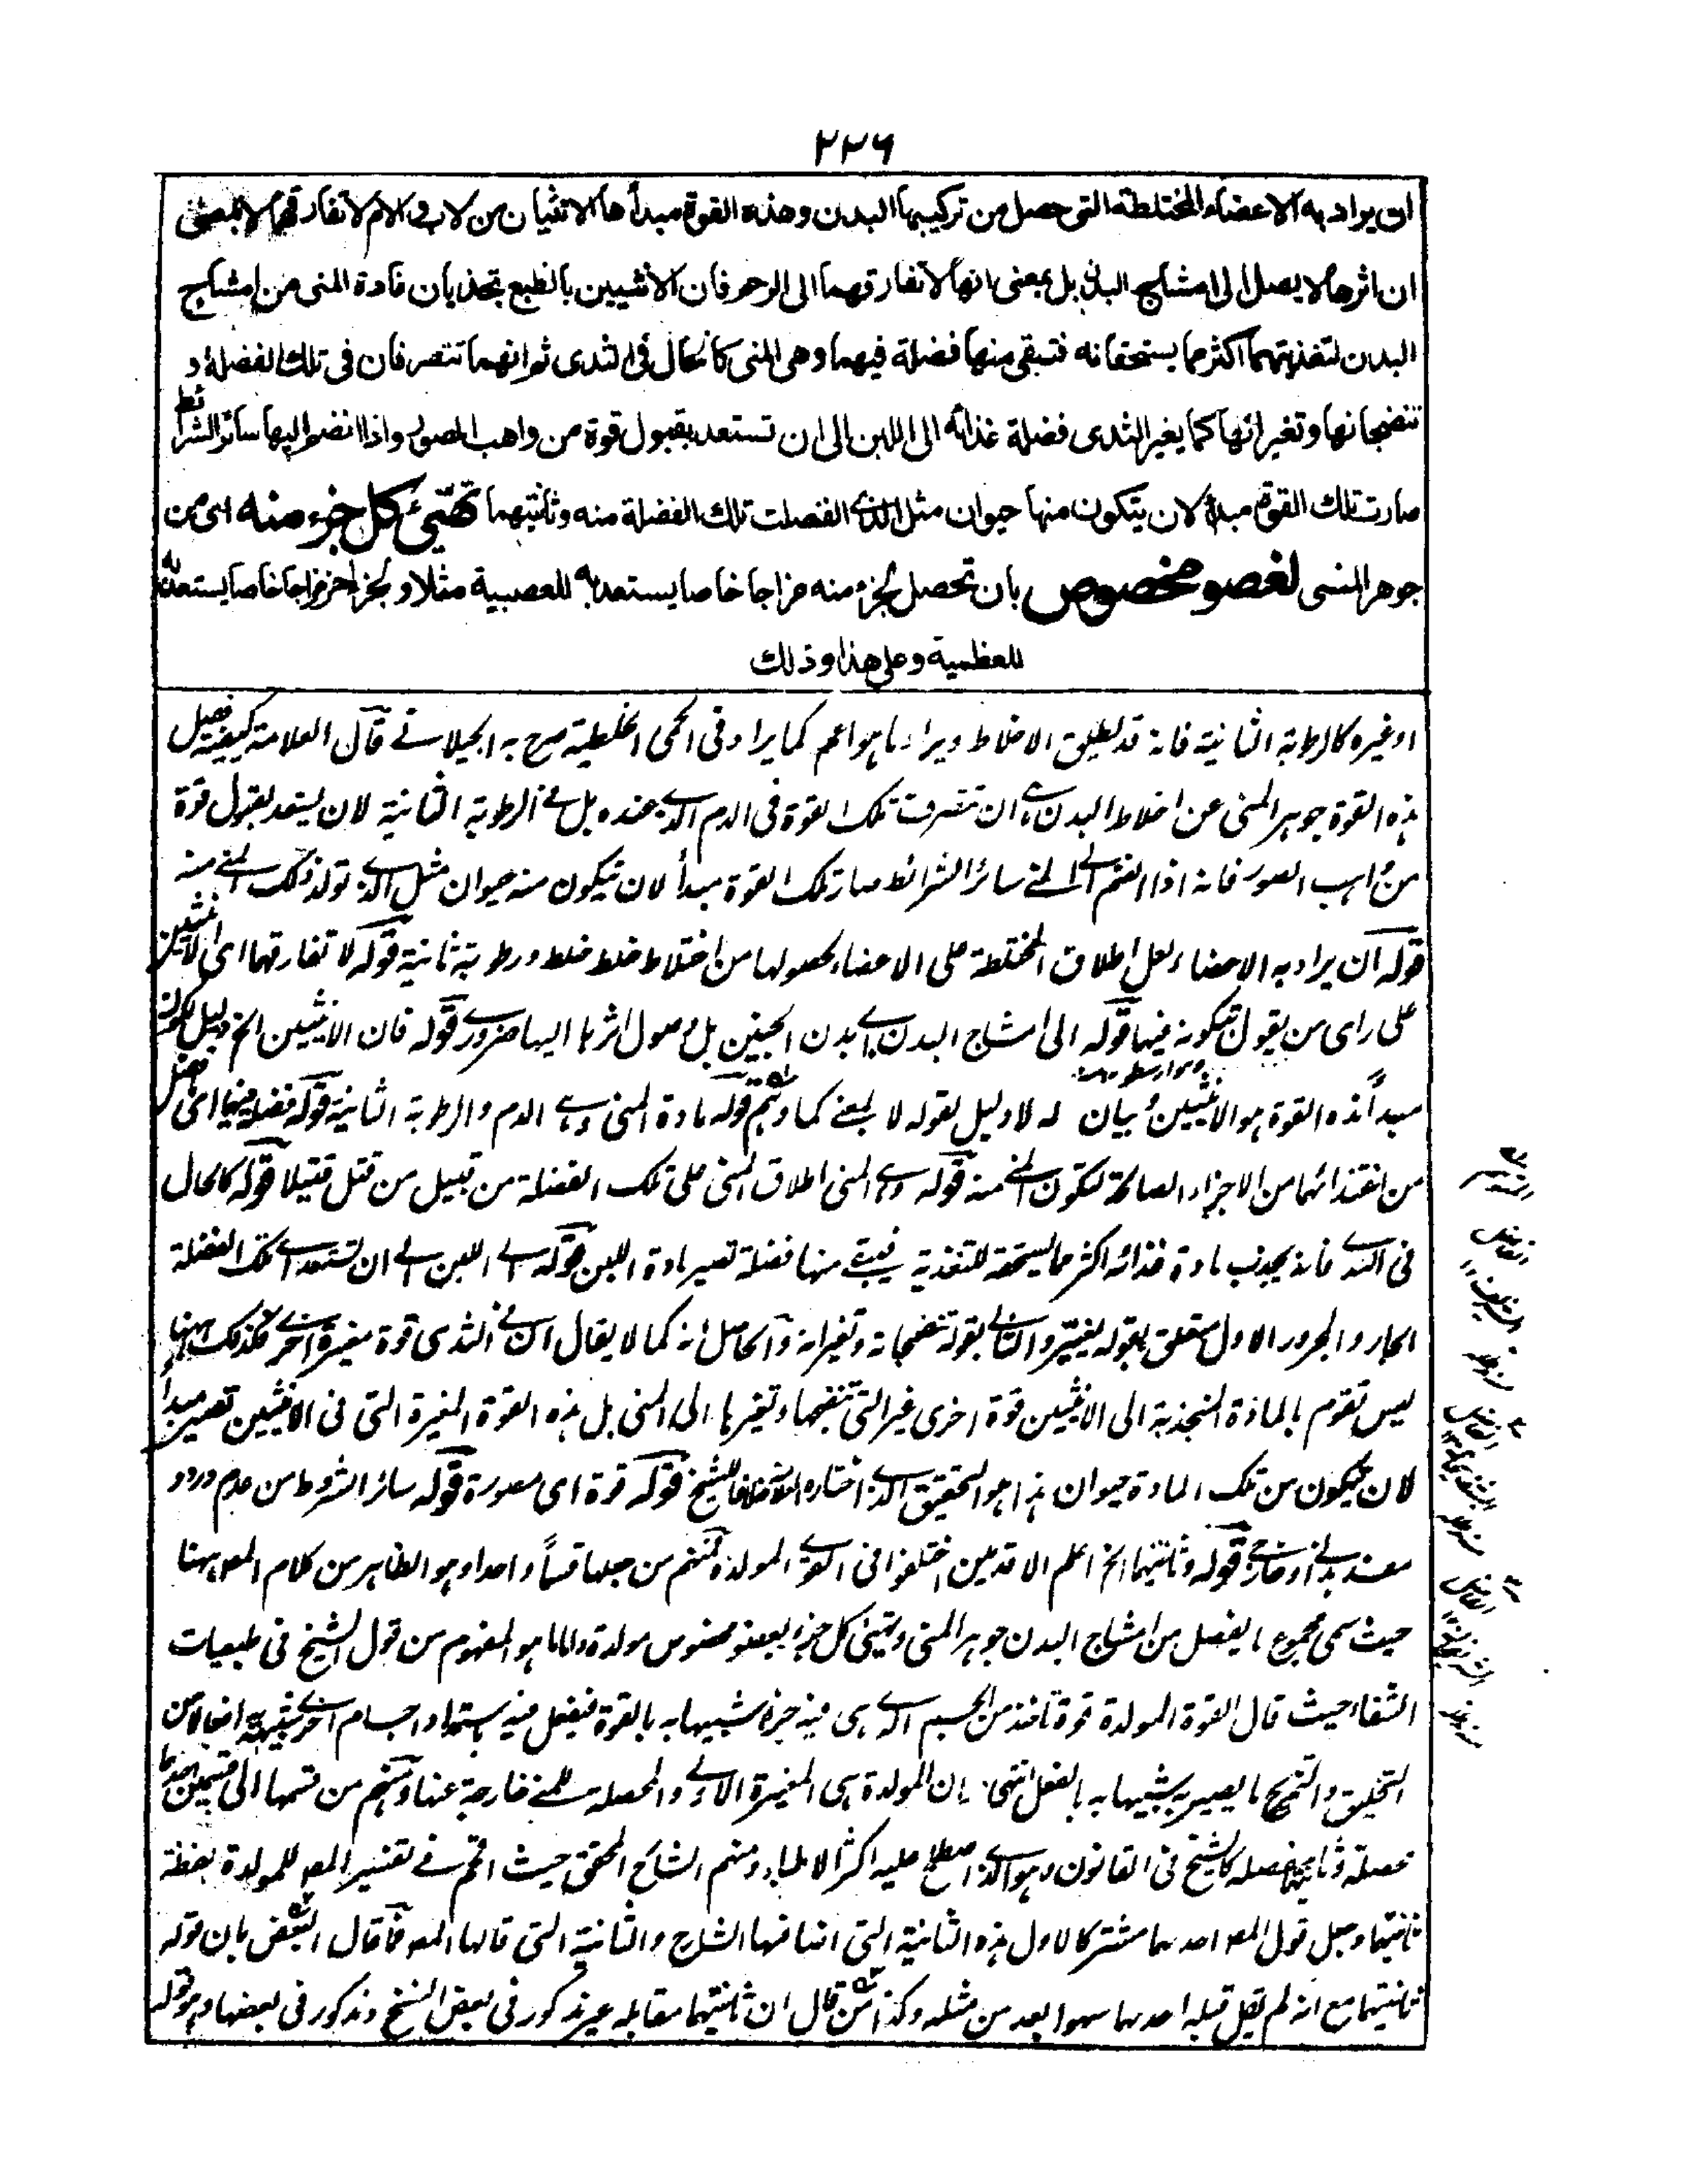 ٢٢٦
ان يراد به الاعضاء المختلطة التى حصل من تركيبها البدن وهذه القوة مبدأها الانثيان من الاب والام لا تفارقهما لا بمعنى
ان اثرها لا يصل الى امشاج البدن بل بمعنى انها لا تفارقهما الى الرحم فان الانثيين بالطبع تجذبان مادة المنى من امشاج
البدن لتغذيتهما اكثر مما يستحقانه فتبقى منها فضلة فيهما وهى المنى كالحال فى الثدى ثم انهما تتصرفان فى تلك الفضلة و
تنضجانها وتغيرانها كما يغير الثدى فضلة غذائه الى اللبن الى ان تستعد بقبول قوة من واهب الصور واذا انضم اليها سائر الشرائط
صارت تلك القوة مبدأ لان يتكون منها حيوان مثل الذى انفصلت تلك الفضلة منه وثانيتهما تهيّئ كل جزء منه اى من
جوهر المنى لعضو مخصوص بان تحصل لجزء منه مزاجا خاصا يستعد به للعصبية مثلا ولجزء اخر مزاجا خاصا يستعد به
للعظمية وعلى هذا وذلك
او غيره كالرطوبة الثانية فانه قد يطلق الاخلاط ويراد ما هو اعم كما يراد فى الحمى الخلطية صرح به الجيلانى قال العلامة كيفية فصل
هذه القوة جوهر المنى عن اخلاط البدن هى ان تتصرف تلك القوة فى الدم الذى عنده بل فى الرطوبة الثانية لان يستعد بقبول قوة
من واهب الصور فانه اذا انضم الى المنى سائر الشرائط صارت تلك القوة مبدأ لان يتكون منه حيوان مثل الذى تولد ذلك المنى منه
قوله ان يراد به الاعضاء لعل اطلاق المختلطة على الاعضاء لحصولها من اختلاط خلط خلط ورطوبة ثانية قوله لا تفارقهما اى الانثيين
على راى من يقول بتكونه فيهما قوله الى امشاج البدن اى بدن الجنين بل وصول اثرها اليها ضرورى قوله فان الانثيين الخ دليل لكون
مبدأ هذه القوة هو الانثيين وبيان له لا دليل لقوله لا بمعنى كما وهم قوله مادة المنى وهى الدم والرطوبة الثانية قوله فضلة فيهما اى فضل
من اغتذائهما من الاجزاء الصالحة لتكون المنى منه قوله وهى المنى اطلاق المنى على تلك الفضلة من قبيل من قتل قتيلا قوله كالحال
فى الثدى فانه يجذب مادة غذائه اكثر مما يستحقه للتغذية فيبقى منها فضلة تصير مادة اللبن قوله الى اللبن الى ان تستعد اى تلك الفضلة
الجار والمجرور الاول متعلق بقوله يغير والثانى بقوله تنضجانه وتغيرانه والحاصل انه كما لا يقال ان فى الثدى قوة مغيرة اخرى فكذلك ههنا
ليس تقوم بالمادة المنجذبة الى الانثيين قوة اخرى غير التى تنضجها وتغيرها الى المنى بل هذه القوة المغيرة التى فى الانثيين تصير مبدأ
لان يتكون من تلك المادة حيوان هذا هو التحقيق الذى اختاره خلافا للشيخ قوله قوة اى مصورة قوله سائر الشروط من عدم ورود
مفسد بدنى او خارجى قوله وثانيتهما الخ اعلم الاقدمين اختلفوا فى القوى المولدة فمنهم من جعلها قسماً واحدا وهو الظاهر من كلام المص ههنا
حيث سمى مجموع ما يفصل من امشاج البدن جوهر المنى ويهيئ كل جزء بعضو مخصوص مولدة واما ما هو المفهوم من قول الشيخ فى طبيعيات
الشفاء حيث قال القوة المولدة قوة تاخذ من الجسم الذى هى فيه جزءا شبيها به بالقوة فيفعل فيه باستمداد اجسام اخرى شبيهة به افعالا من
التخليق والتمزيج ما يصير به شبيها به بالفعل انتهى ان المولدة هى المغيرة الاولى والمحصلة للمنى خارجة عنها ومنهم من قسمها الى قسمين احدهما
محصلة وثانيهما مفصلة كالشيخ فى القانون وهو الذى اصطلح عليه اكثر الاطباء ومنهم الشارح المحقق حيث اقحم فى تفسير المص للمولدة لفظة
ثانيتهما وجعل قول المص احدهما مشتركا لاول هذه الثانية التى اضافها الشارح والثانية التى قالها المص فما قال البعض بان قوله
ثانيتهما مع انه لم يقل قبله احدهما سهو ابعد من مثله وكذا من قال ان ثانيتهما مقابله غير مذكور فى بعض النسخ ومذكور فى بعضها وهو قوله